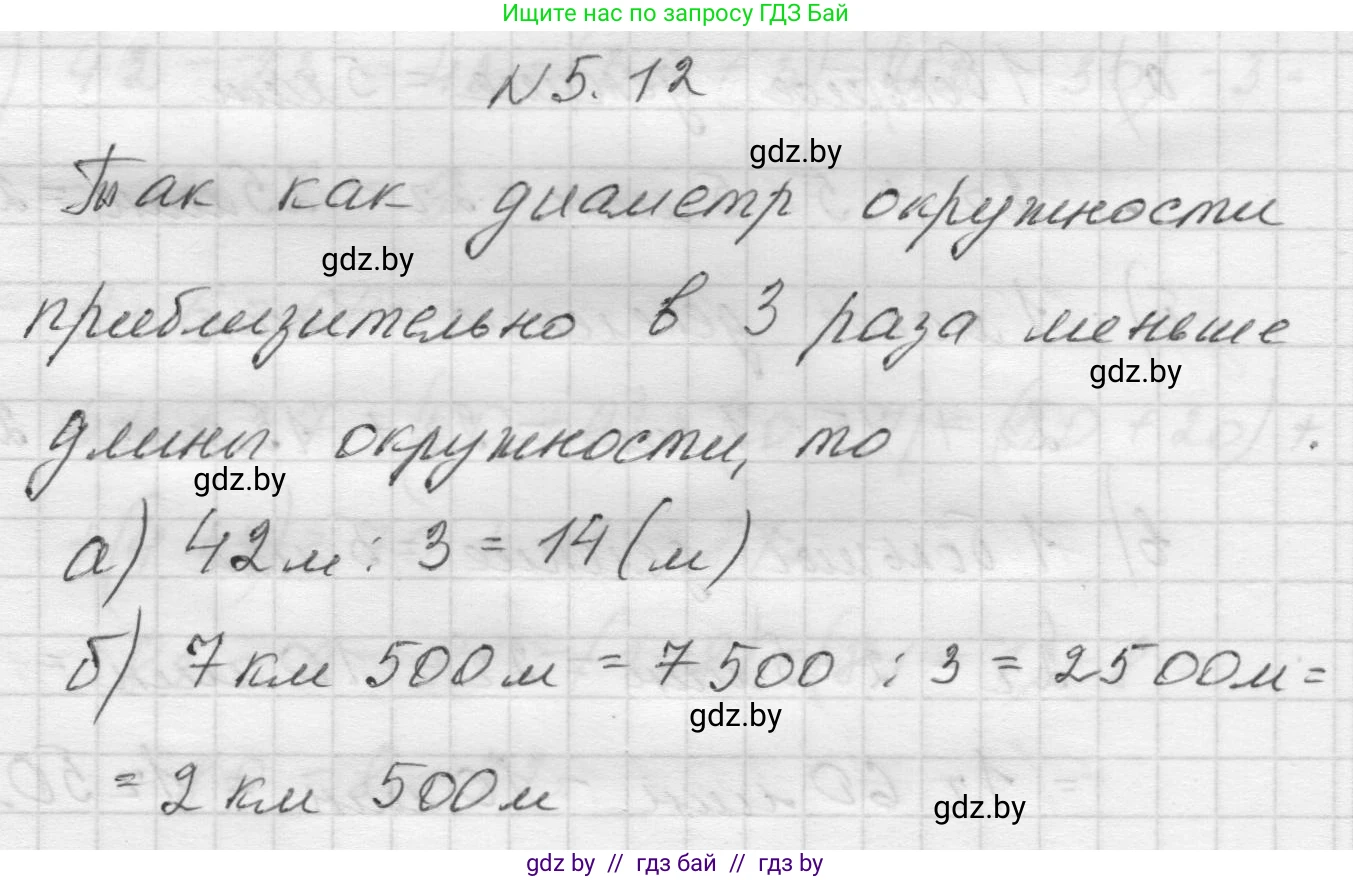 Ищите нас по запросу ГДЗ Бай
N 5.12
gdz.by
Так как диаметр окружности
gdz.by
приблизительно в 3 раза меньше
gdz.by
длины окружности, то
gdz.by
а) 42м : 3 = 14 (м)
б) 7 км 500 м = 7 500 : 3 = 2500м =
gdz.by
= 2 км 500 м
gdz.by
gdz by // гдз бай // gdz by